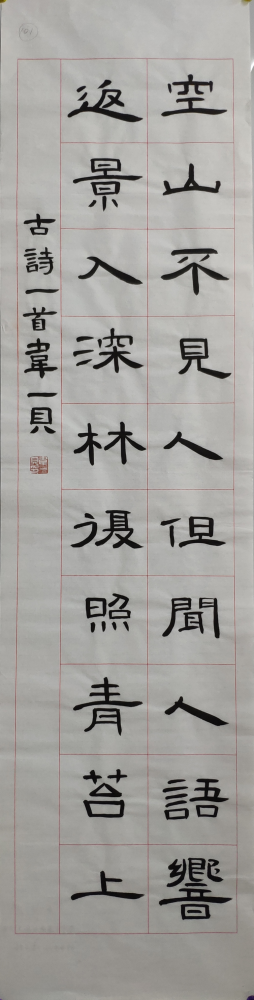 空山不見人但聞人語響
返景入深林復照青苔上
古詩一首韋一貝